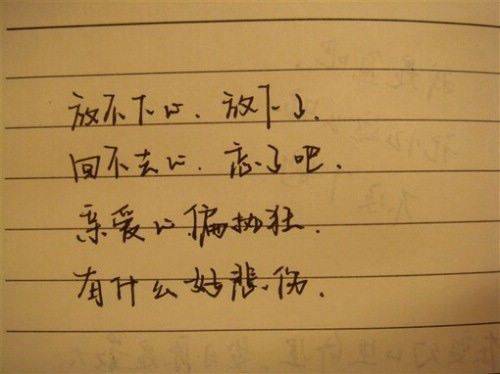 放不下心、放下了.
回不去心、忘了吧.
亲爱心偏执狂.
有什么好悲伤.